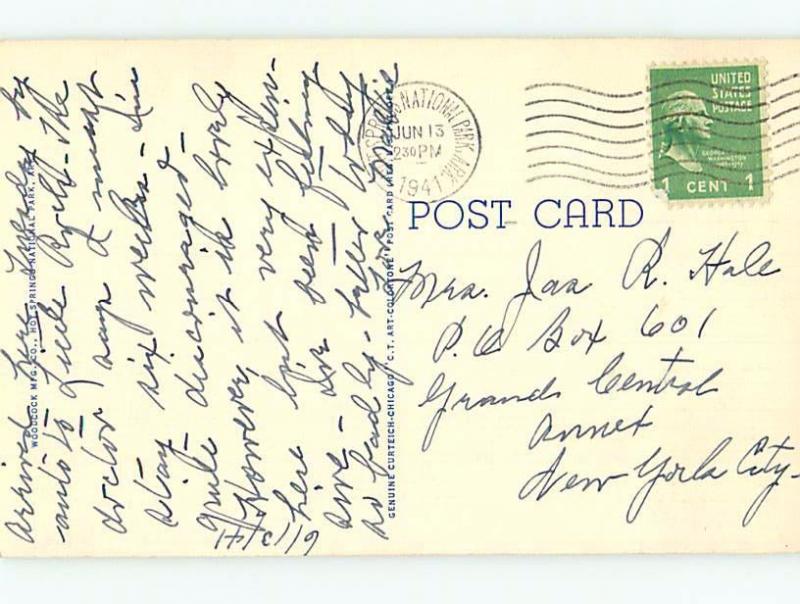 Arrived here Tuesday by
auto to Little Rock - The
doctor says I must
stay six weeks - I'm
quite discouraged -
However it is lovely
here but very expen-
sive - I've been feeling
so badly - today
6/13/41
WOODCOCK MFG. CO., HOT SPRINGS NATIONAL PARK, ARK.
GENUINE CURTEICH-CHICAGO "C.T. ART-COLORTONE" POST CARD
NATIONAL PARK, ARK.
JUN 13
2 30 PM
1941
UNITED
STATES
POSTAGE
GEORGE
WASHINGTON
1 CENT 1
POST CARD
Mrs. Jas R. Hale
P.O Box 601
Grand Central
Annex
New York City -